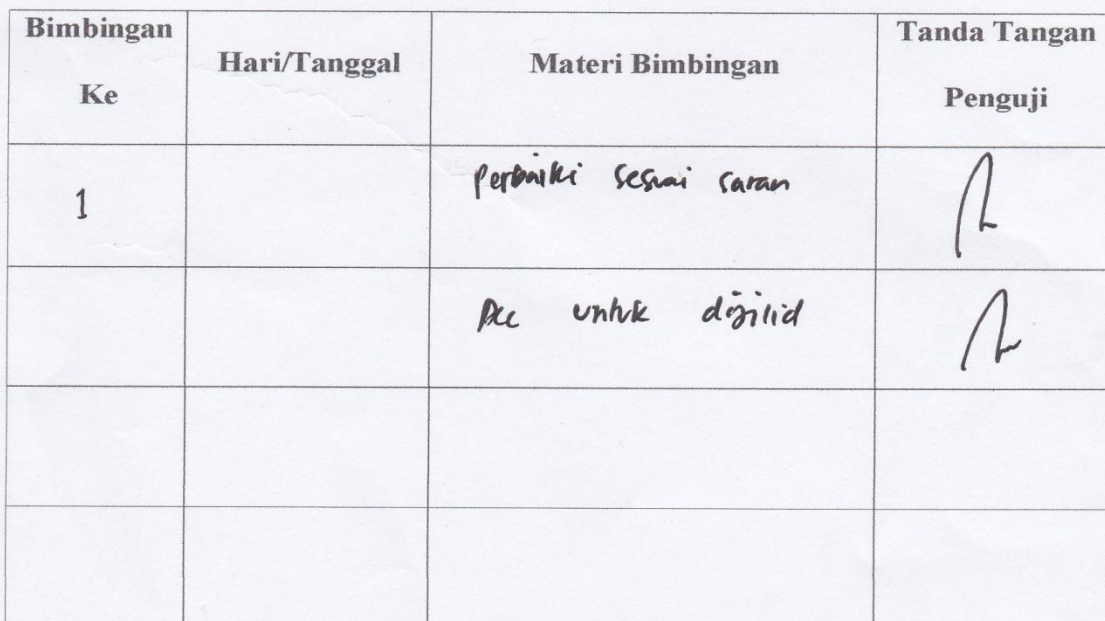 Bimbingan Ke
Hari/Tanggal
Materi Bimbingan
Tanda Tangan Penguji
1
Perbaiki sesuai saran
Acc untuk dijilid